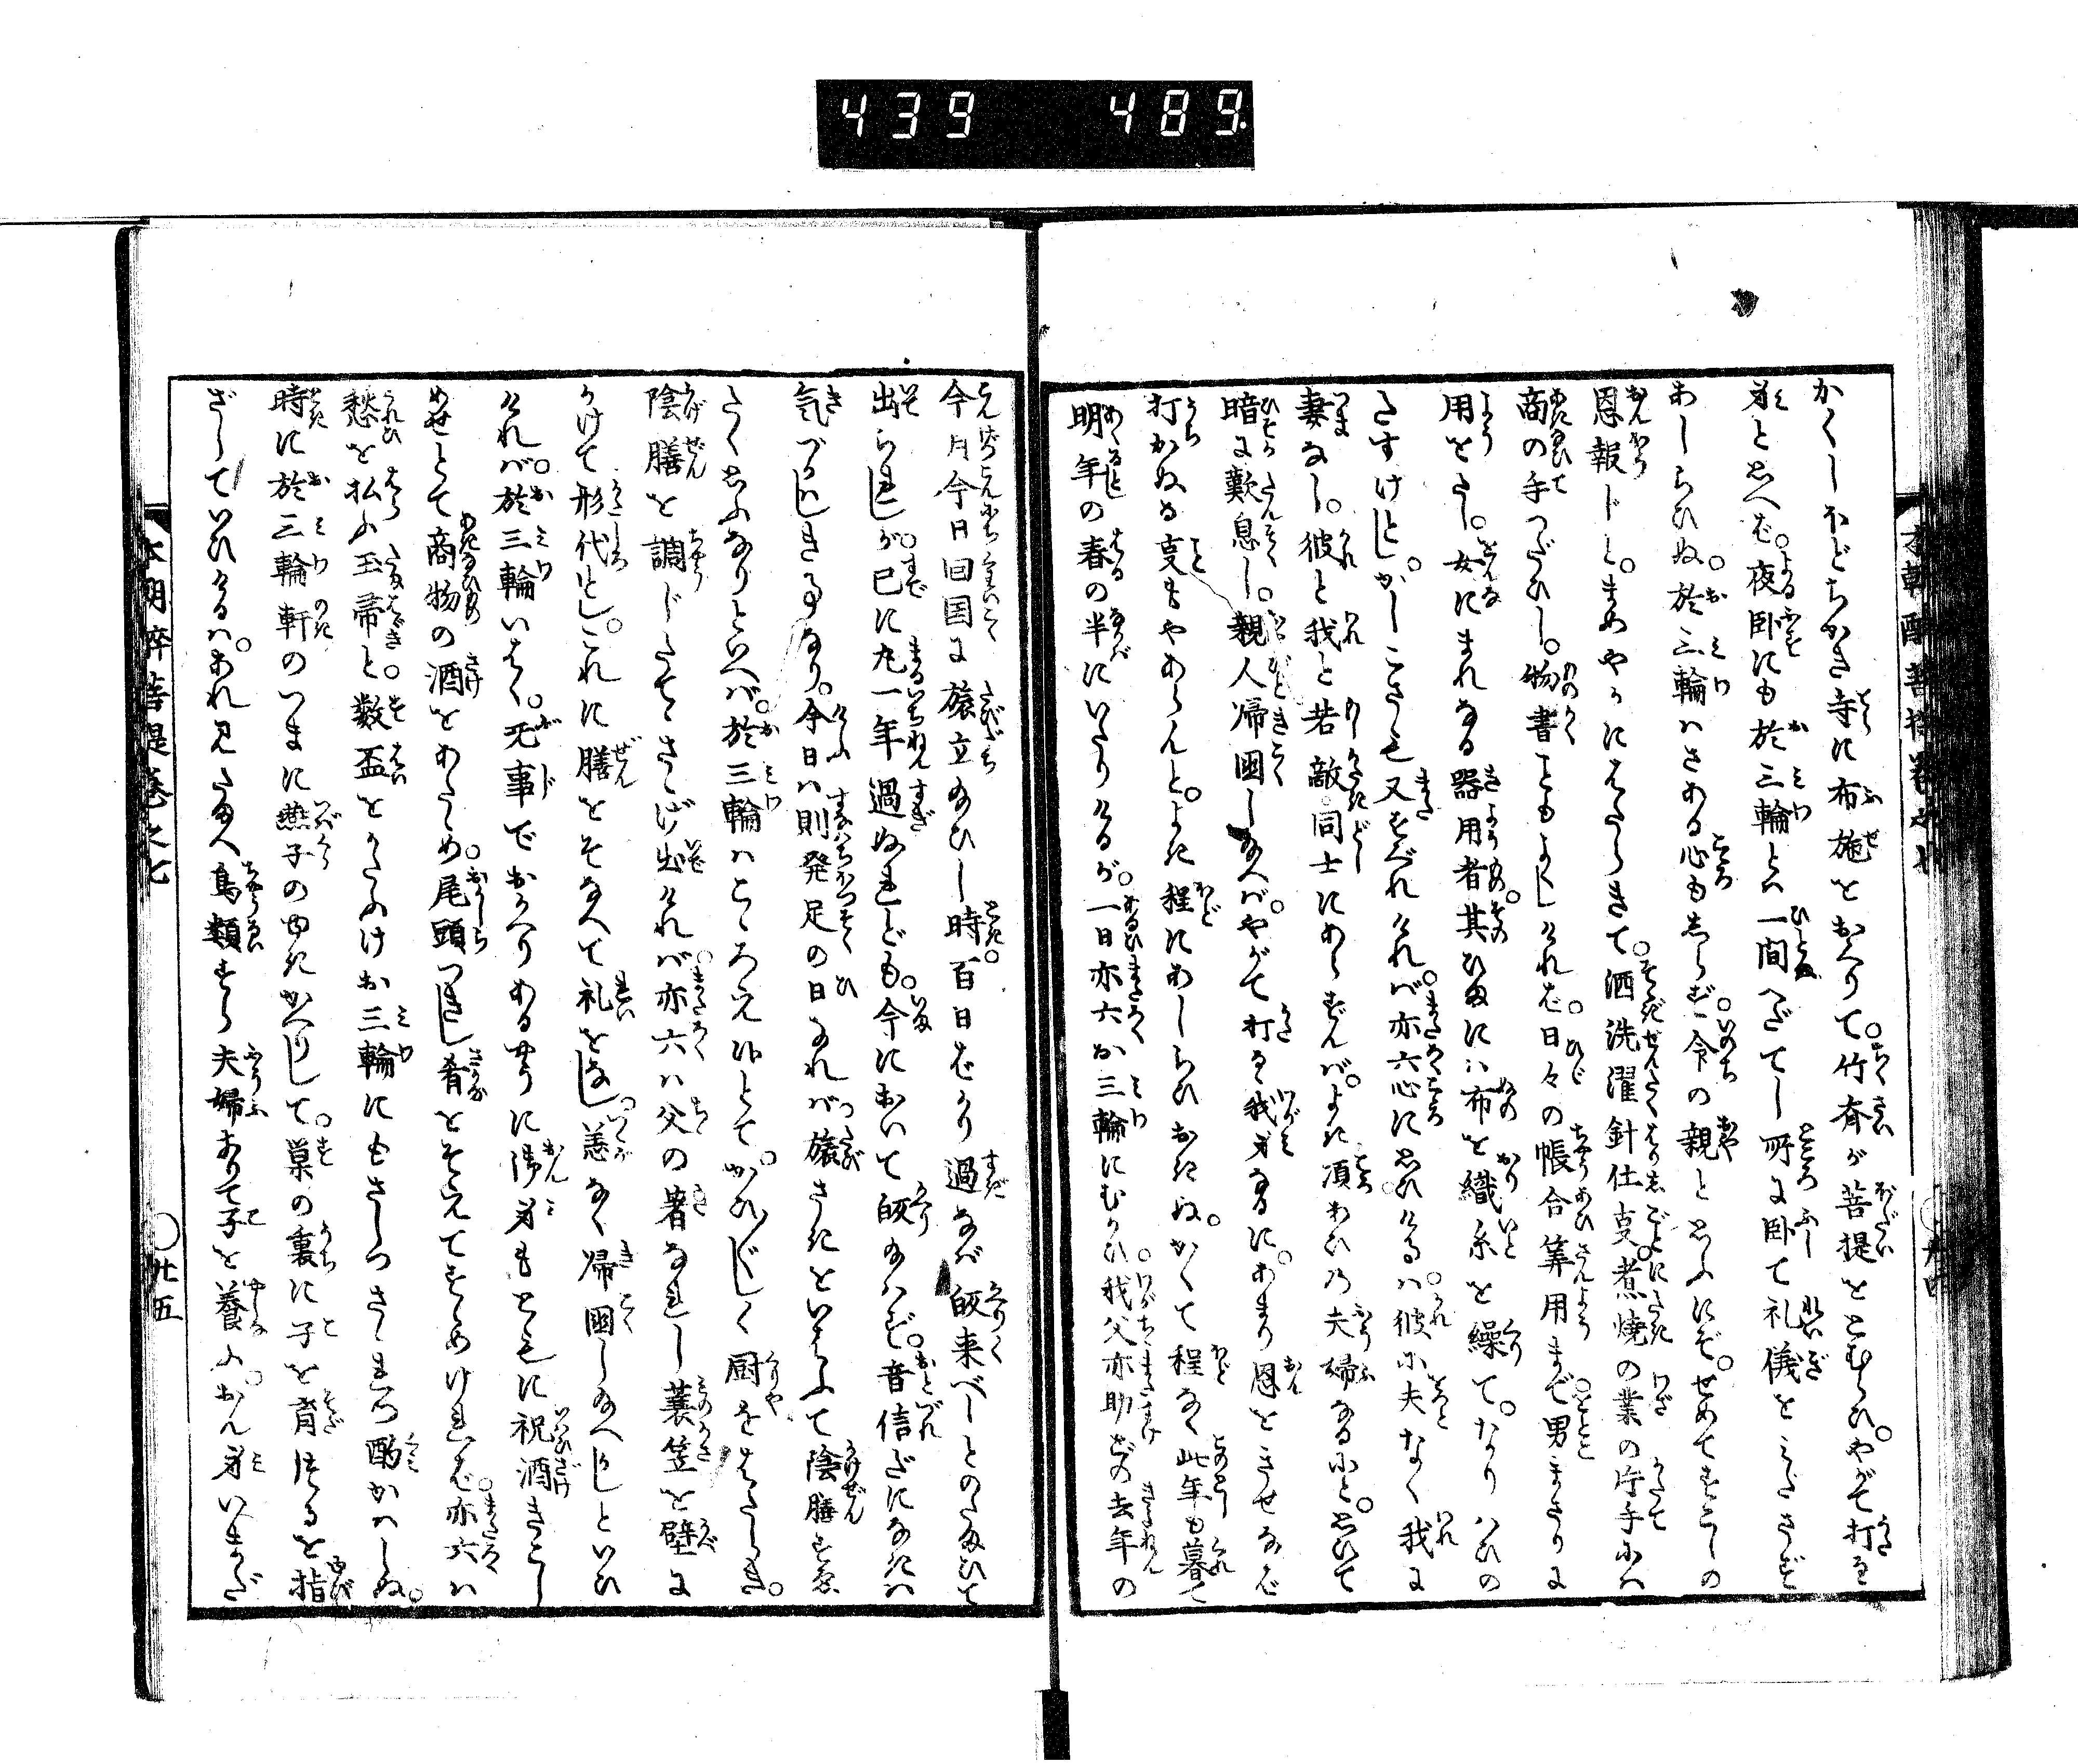 439 489
かくしおどちかき寺に布施をおくりて。竹斉が菩提をとむらひ。やがて打る
身と思へば。夜臥にも於三輪とは一間へだてし所に臥て礼儀をみださず
あしらひぬ。於三輪はさある心もしらず。命の親と思ふにぞ。せめてすこしの
恩報じと。まめやかにはたらきて。洒洗濯針仕事。煮焼の業の片手には
商の手つだひし。物書こともよくしければ。日々の帳合算用まで男まさりに
用をたし。女にまれなる器用者其ひまには布を織糸を繰て。なりはひの
たすけとし。かしこさも又すぐれければ。亦六心に思ひけるは。彼は夫なく我は
妻なし。彼と我と若敵同士にあらずんば。よき頃あひの夫婦なるにと。思ひて
暗に歎息し。親人帰国し給へば。やがて打るゝ我身なるに。あまり恩をきせなば
打かぬる事もやあらんと。よき程にあしらひおきぬ。かくて程なく此年も暮て
明年の春の半にいたりけるが。一日亦六お三輪にむかひ我父亦助どの去年の
今月今日回国に旅立給ひし時。百日ばかり過なば皈来べしとのたまひて
出られしが。已に凡一年過ぬれども。今において皈給はず。音信だになきは
気づかはしき事なり。今日は則発足の日なれば旅さきをいはふて陰膳すゑ
たく思ふなりといへば。於三輪はこゝろえ侍とて。かひ〴〵しく厨をはたらき。
陰膳を調じたてゝさゝげ出ければ。亦六は父の着なれし蓑笠を壁に
かけて形代とし。これに膳をそなへて礼をなし。恙なく帰国し給へかしといひ
ければ。於三輪いはく。无事でおかへりあるやうに御身もともに祝酒きこし
めせとて商物の酒をあたゝめ。尾頭つきし肴をそえてすゝめければ。亦六は
愁を払ふ玉帚と。数盃をかたふけお三輪にもさしつさゝれつ酌かはしぬ。
時に於三輪軒のつまに燕子のゆきかへりして。巣の裏に子を育はぐゝむを指
ざしていひけるは。あれ見たまへ鳥類すら夫婦ありて子を養ふ。おん身いまだ
本朝酔菩提巻之七
○廿五